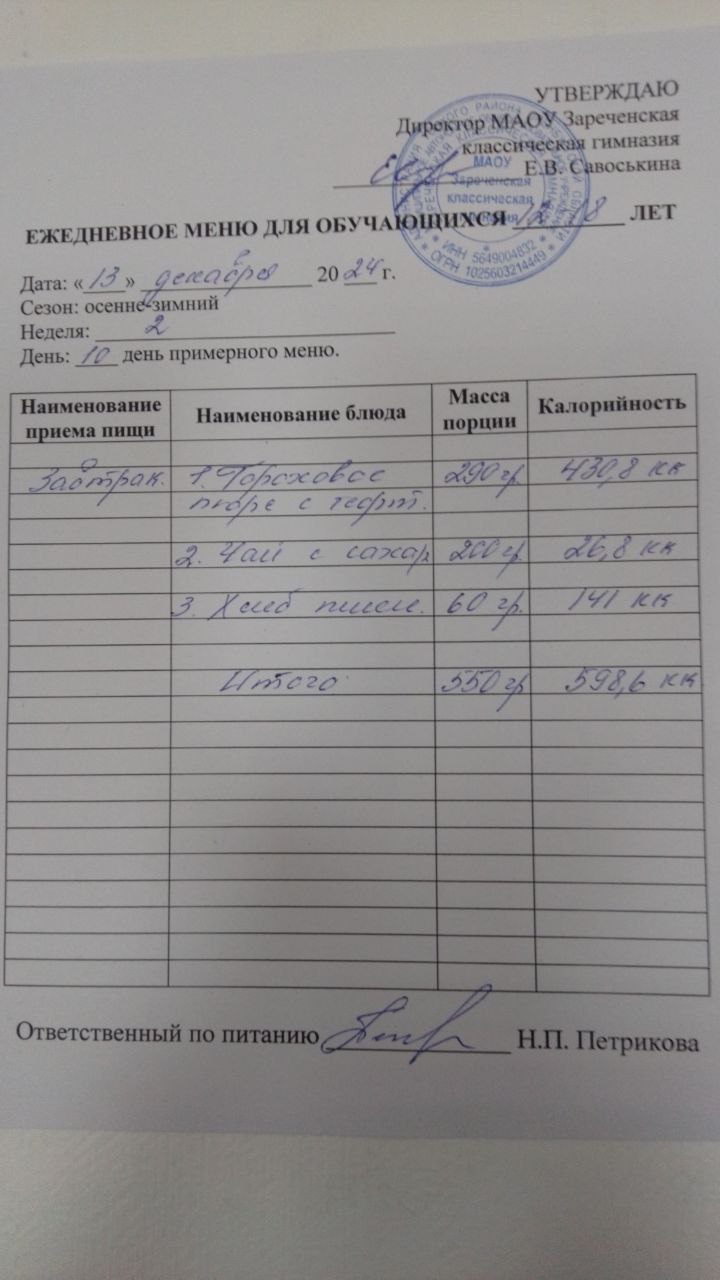 УТВЕРЖДАЮ
Директор МАОУ Зареченская
классическая гимназия
Е.В. Савоськина
МАОУ
Зареченская
классическая
гимназия
* ИНН 5649004832 *
* ОГРН 1025603214449 *
ЕЖЕДНЕВНОЕ МЕНЮ ДЛЯ ОБУЧАЮЩИХСЯ 12-18 ЛЕТ
Дата: «13» декабря 2024 г.
Сезон: осенне-зимний
Неделя: 2
День: 10 день примерного меню.
Наименование приема пищи Наименование блюда Масса порции Калорийность
Завтрак. 1. Гороховое 290 гр. 430,8 кк
пюре с тефт.
2. Чай с сахар 200 гр. 26,8 кк
3. Хлеб пшен. 60 гр. 141 кк
Итого 550 гр 598,6 кк
Ответственный по питанию Н.П. Петрикова